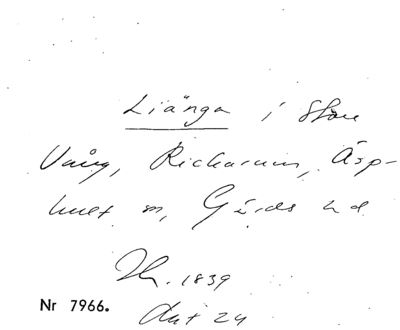 Liänga i Stora
Vång, Richarum, Äsp-
hult sn, Gärds hd
Nr 7966.
1839
Akt 24